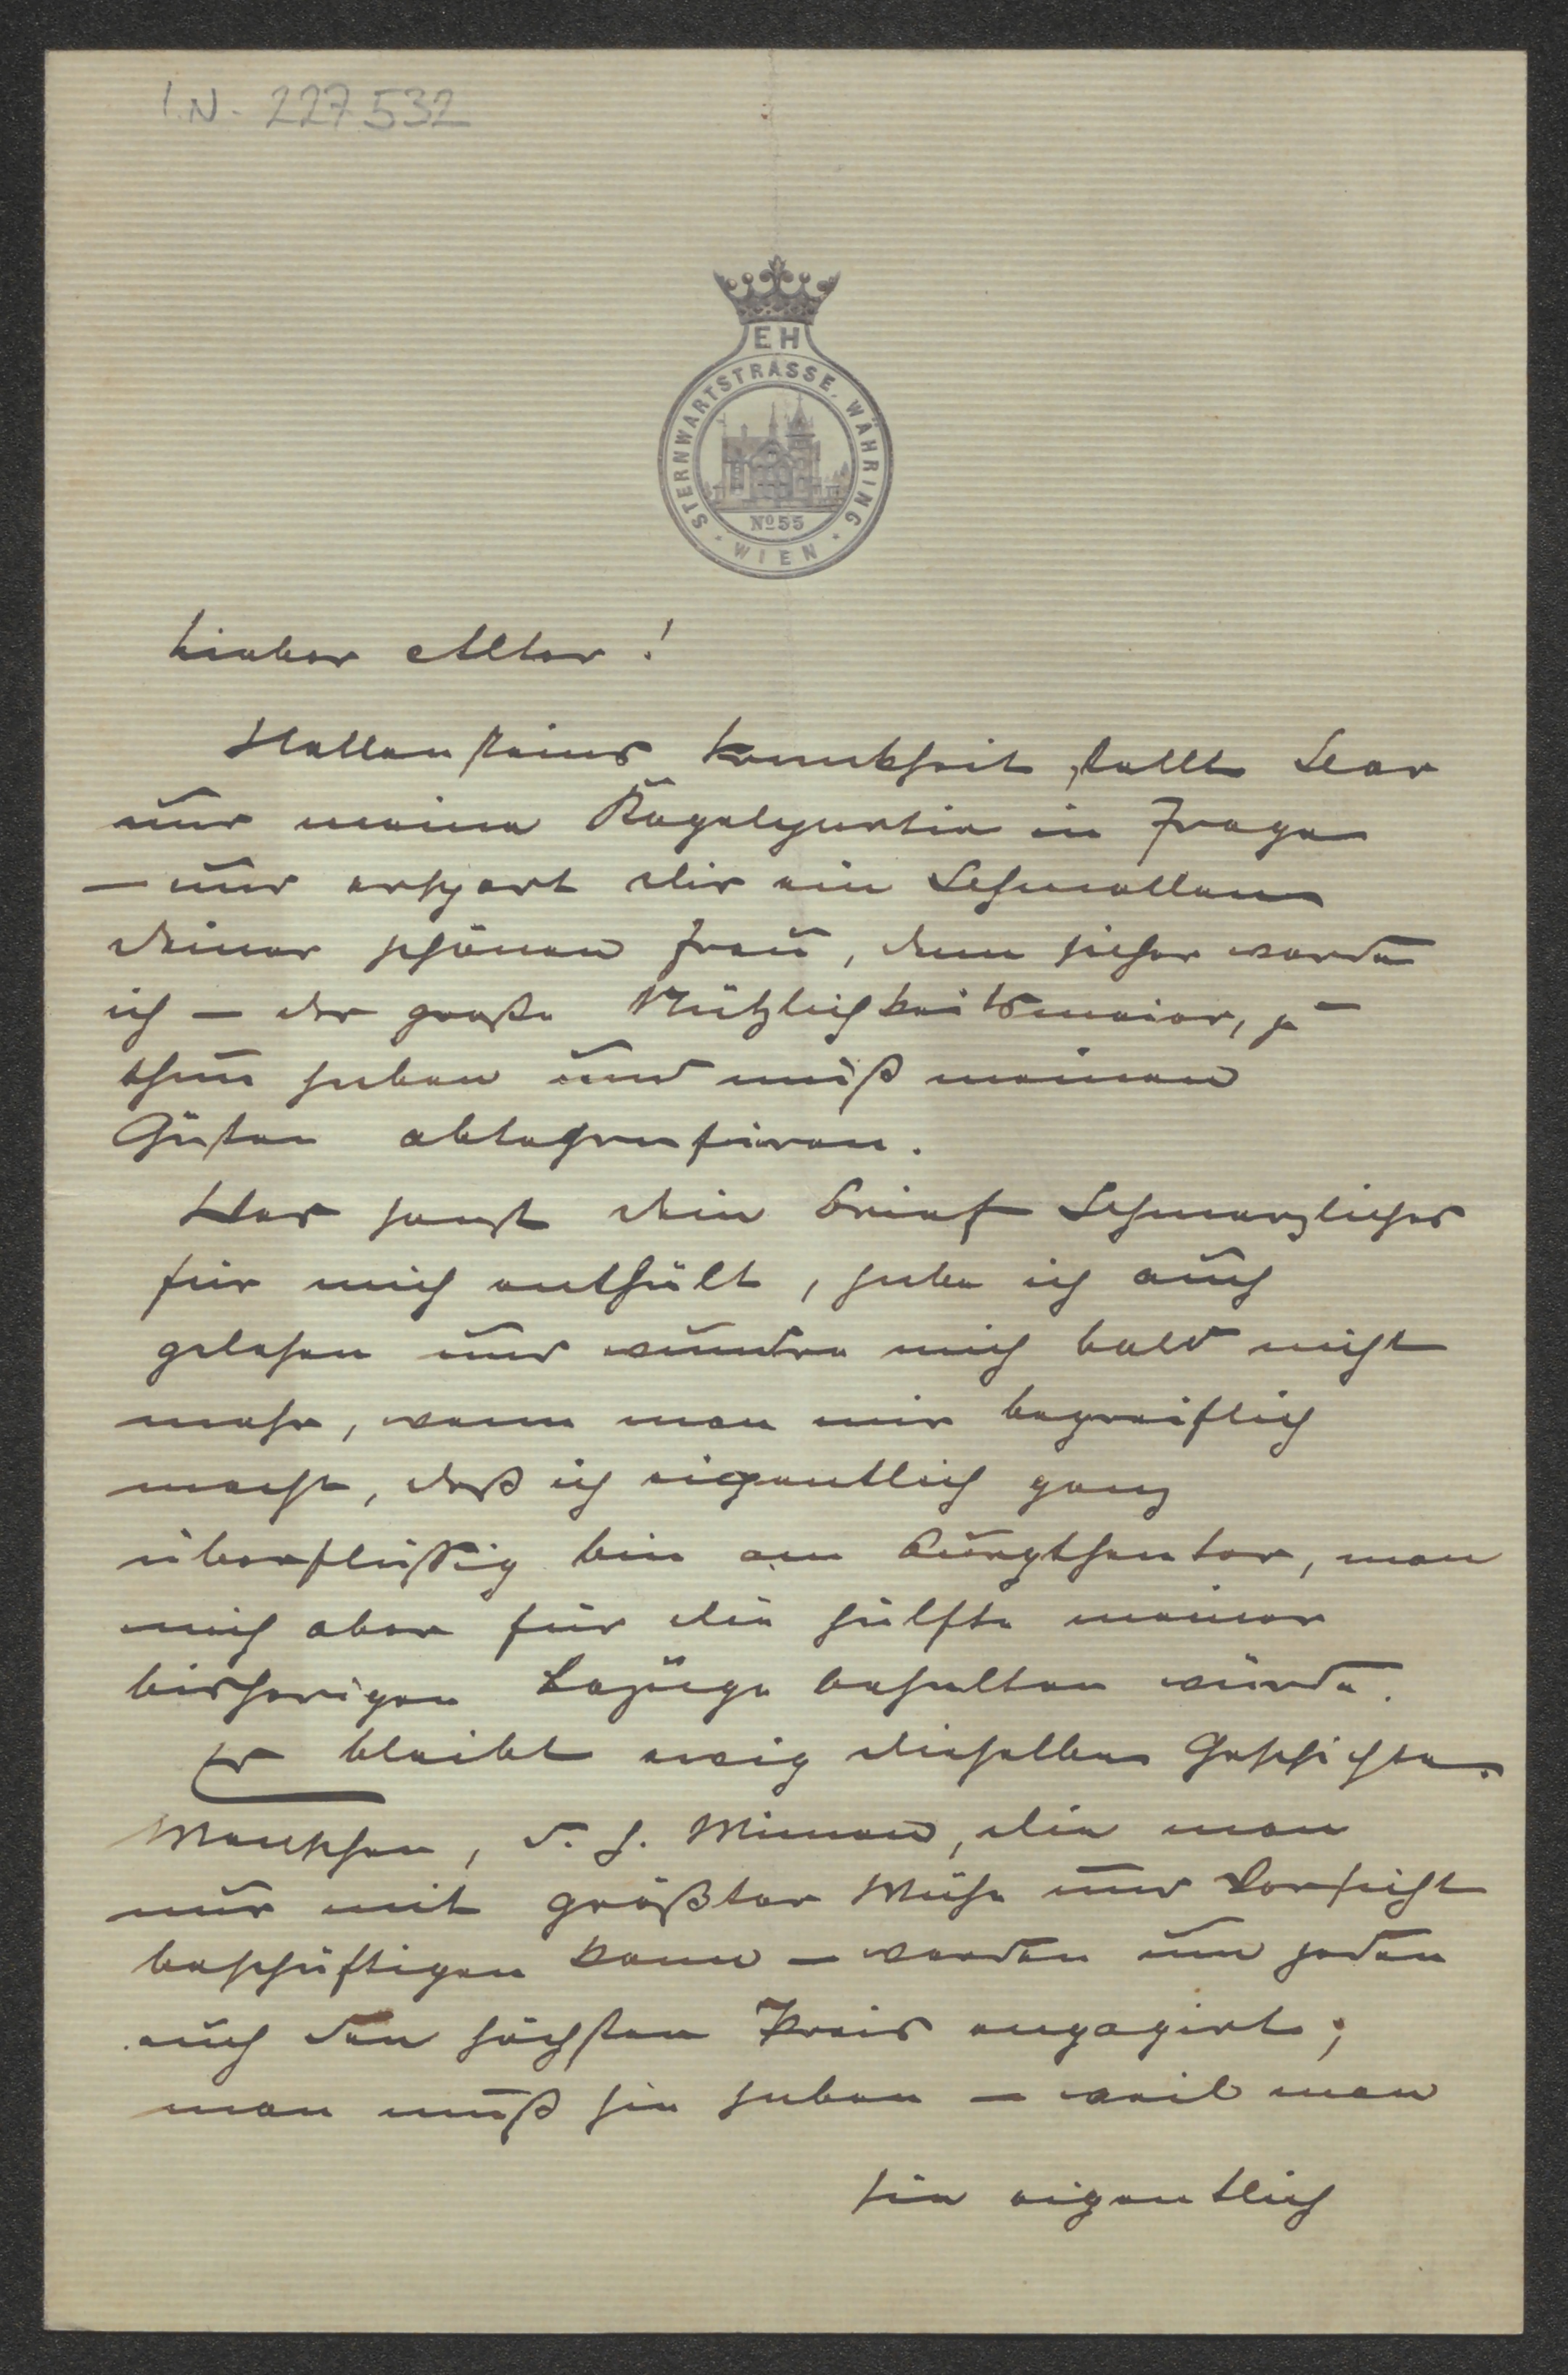 I.N. 227532
EH
STERNWARTSTRASSE, WÄHRING
No 55
WIEN
Lieber Alter!
Hallensteins Krankheit stellt
nur meine Kegelpartie in Frage
– und erspart Dir ein Schmollen
Deiner schönen Frau, denn sicher werde
ich – der große Nützlichkeitsmeier, zu
thun haben und muß meinen
Gästen abtelegrafiren.
Was sonst Dein Brief Schmerzliches
für mich enthält, habe ich auch
gelesen und wundre mich bald nicht
mehr, wenn man mir begreiflich
macht, daß ich eigentlich ganz
überflüssig bin am Burgtheater, man
mich aber für die Hälfte meiner
bisherigen Bezüge behalten würde.
Es bleibt ewig dieselbe Geschichte.
Menschen, d. h. Mimen, die man
nur mit größter Mühe und Vorsicht
beschäftigen kann – werden um jeden
auch den höchsten Preis engagirt;
man muß sie haben – weil man
sie eigentlich